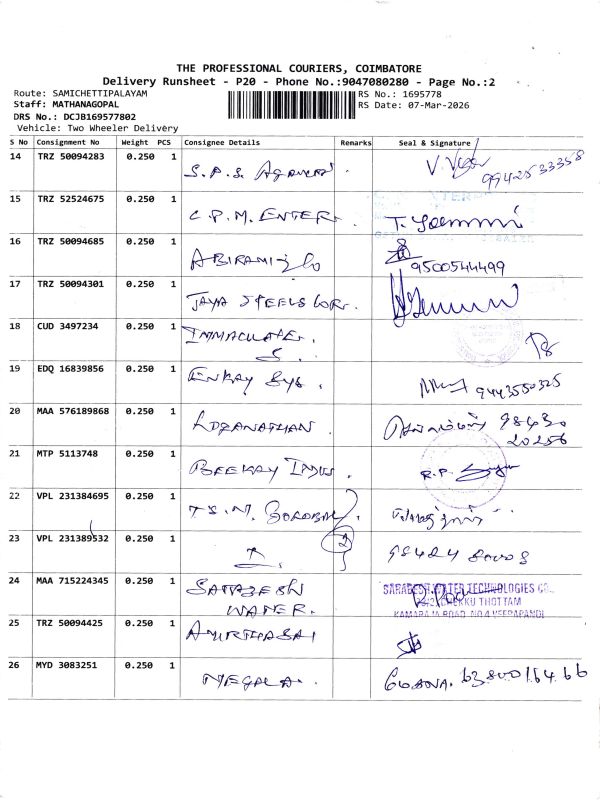 THE PROFESSIONAL COURIERS, COIMBATORE
Delivery Runsheet - P20 - Phone No.:9047080280 - Page No.:2
Route: SAMICHETTIPALAYAM
RS No.: 1695778
Staff: MATHANAGOPAL
RS Date: 07-Mar-2026
DRS No.: DCJB169577802
Vehicle: Two Wheeler Delivery
S No Consignment No Weight PCS Consignee Details Remarks Seal & Signature
14 TRZ 50094283 0.250 1 S.P.S. 99425 33358
15 TRZ 52524675 0.250 1 C.P.M. ENTER.
16 TRZ 50094685 0.250 1 ABIRAMI 9500544499
17 TRZ 50094301 0.250 1 JAYA STEELS COR.
18 CUD 3497234 0.250 1 IMMACULATE.
S.
19 EDQ 16839856 0.250 1 ENKAY SYS. 9443550325
20 MAA 576189868 0.250 1 LOGANATHAN 98430
20256
21 MTP 5113748 0.250 1 BEEKAY INDUS. R.P.
22 VPL 231384695 0.250 1 T.S.M.
23 VPL 231389532 0.250 1 2
24 MAA 715224345 0.250 1 SARABESH SARABESH WATER TECHNOLOGIES CO.,
WATER. THOTTAM
KAMARAJA ROAD NO.4 VEERAPANDI
25 TRZ 50094425 0.250 1 AMIRTHASAI
26 MYD 3083251 0.250 1 MEGALA. 63800 164 66